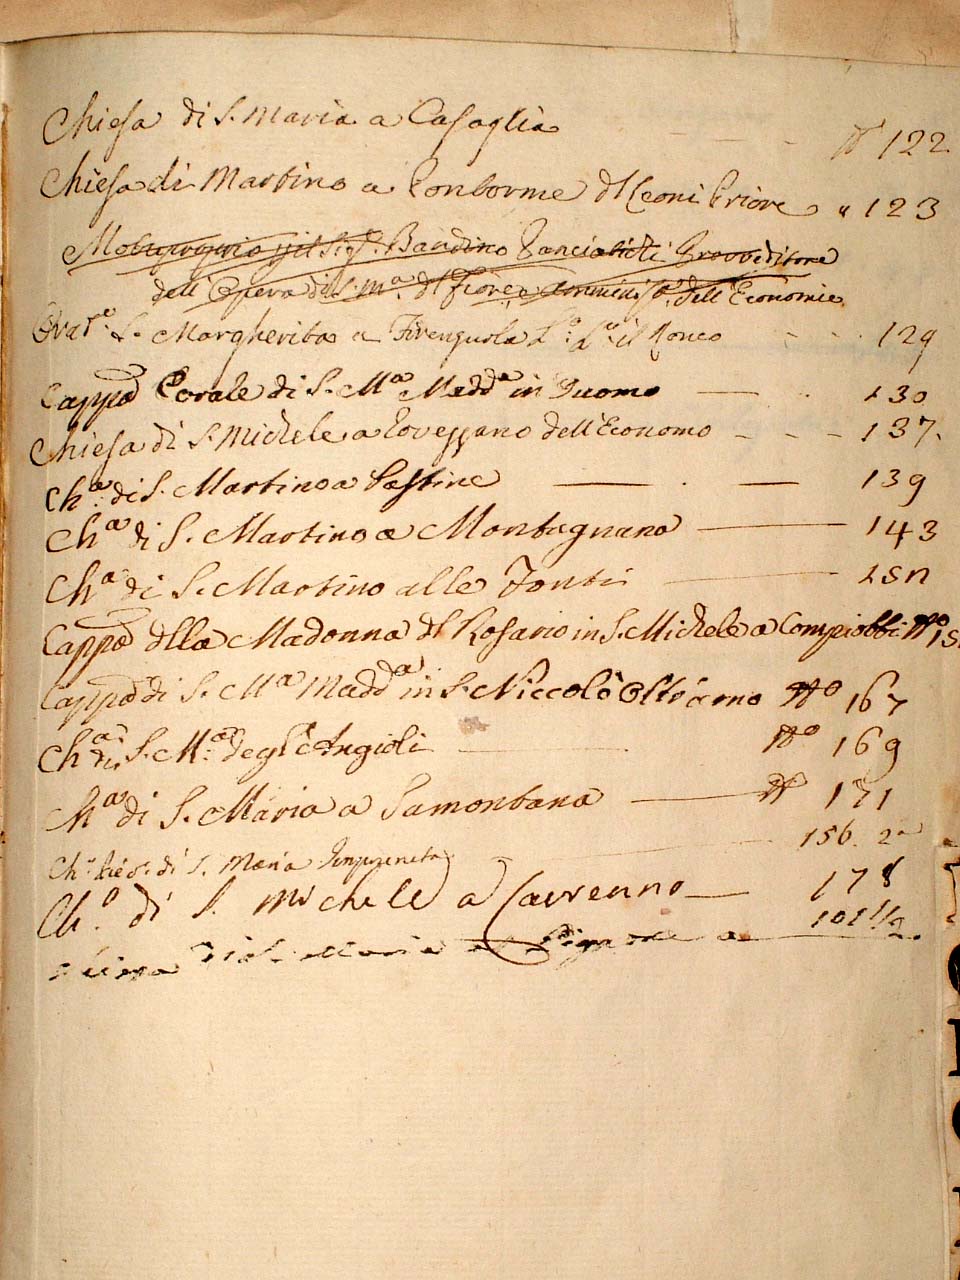 Chiesa di S. Maria a Casaglia - - - No 122.
Chiesa di S. Martino a Pontorme dl Leoni Priore " 123
Motuproprio pil Sigr. Bandino Panciatichi Provveditore
dell'Opera di S. Ma. dl Fiore, e Amminis. dell'Economie
Orat.o S. Margherita a Firenzuola La. Lo. il Ronco - - - 129
Capp.e Corale di S. Ma Madda in Duomo — . . 130
Chiesa di S. Michele a Rovezzano dell'Economo - - - 137.
Cha. di S. Martino a Pastine — . — 139
Cha di S. Martino a Montugnano — 143
Cha di S. Martino alle Fonti — 152
Cappa dlla Madonna dl Rosario in S. Michele a Compiobbi No 15
Cappa di S. Ma Madda in S. Niccolò Oltrarno No 167
Cha di S. Ma. degl'Angioli — No 169
Cha di S. Maria a Samontana — No 171
Cha. Piev. di S. Maria Impruneta 156. 2a
Cha. di S. Michele a Cavrenno — 178
Chiesa di S. Maria a Pignone a — 101 1/2.